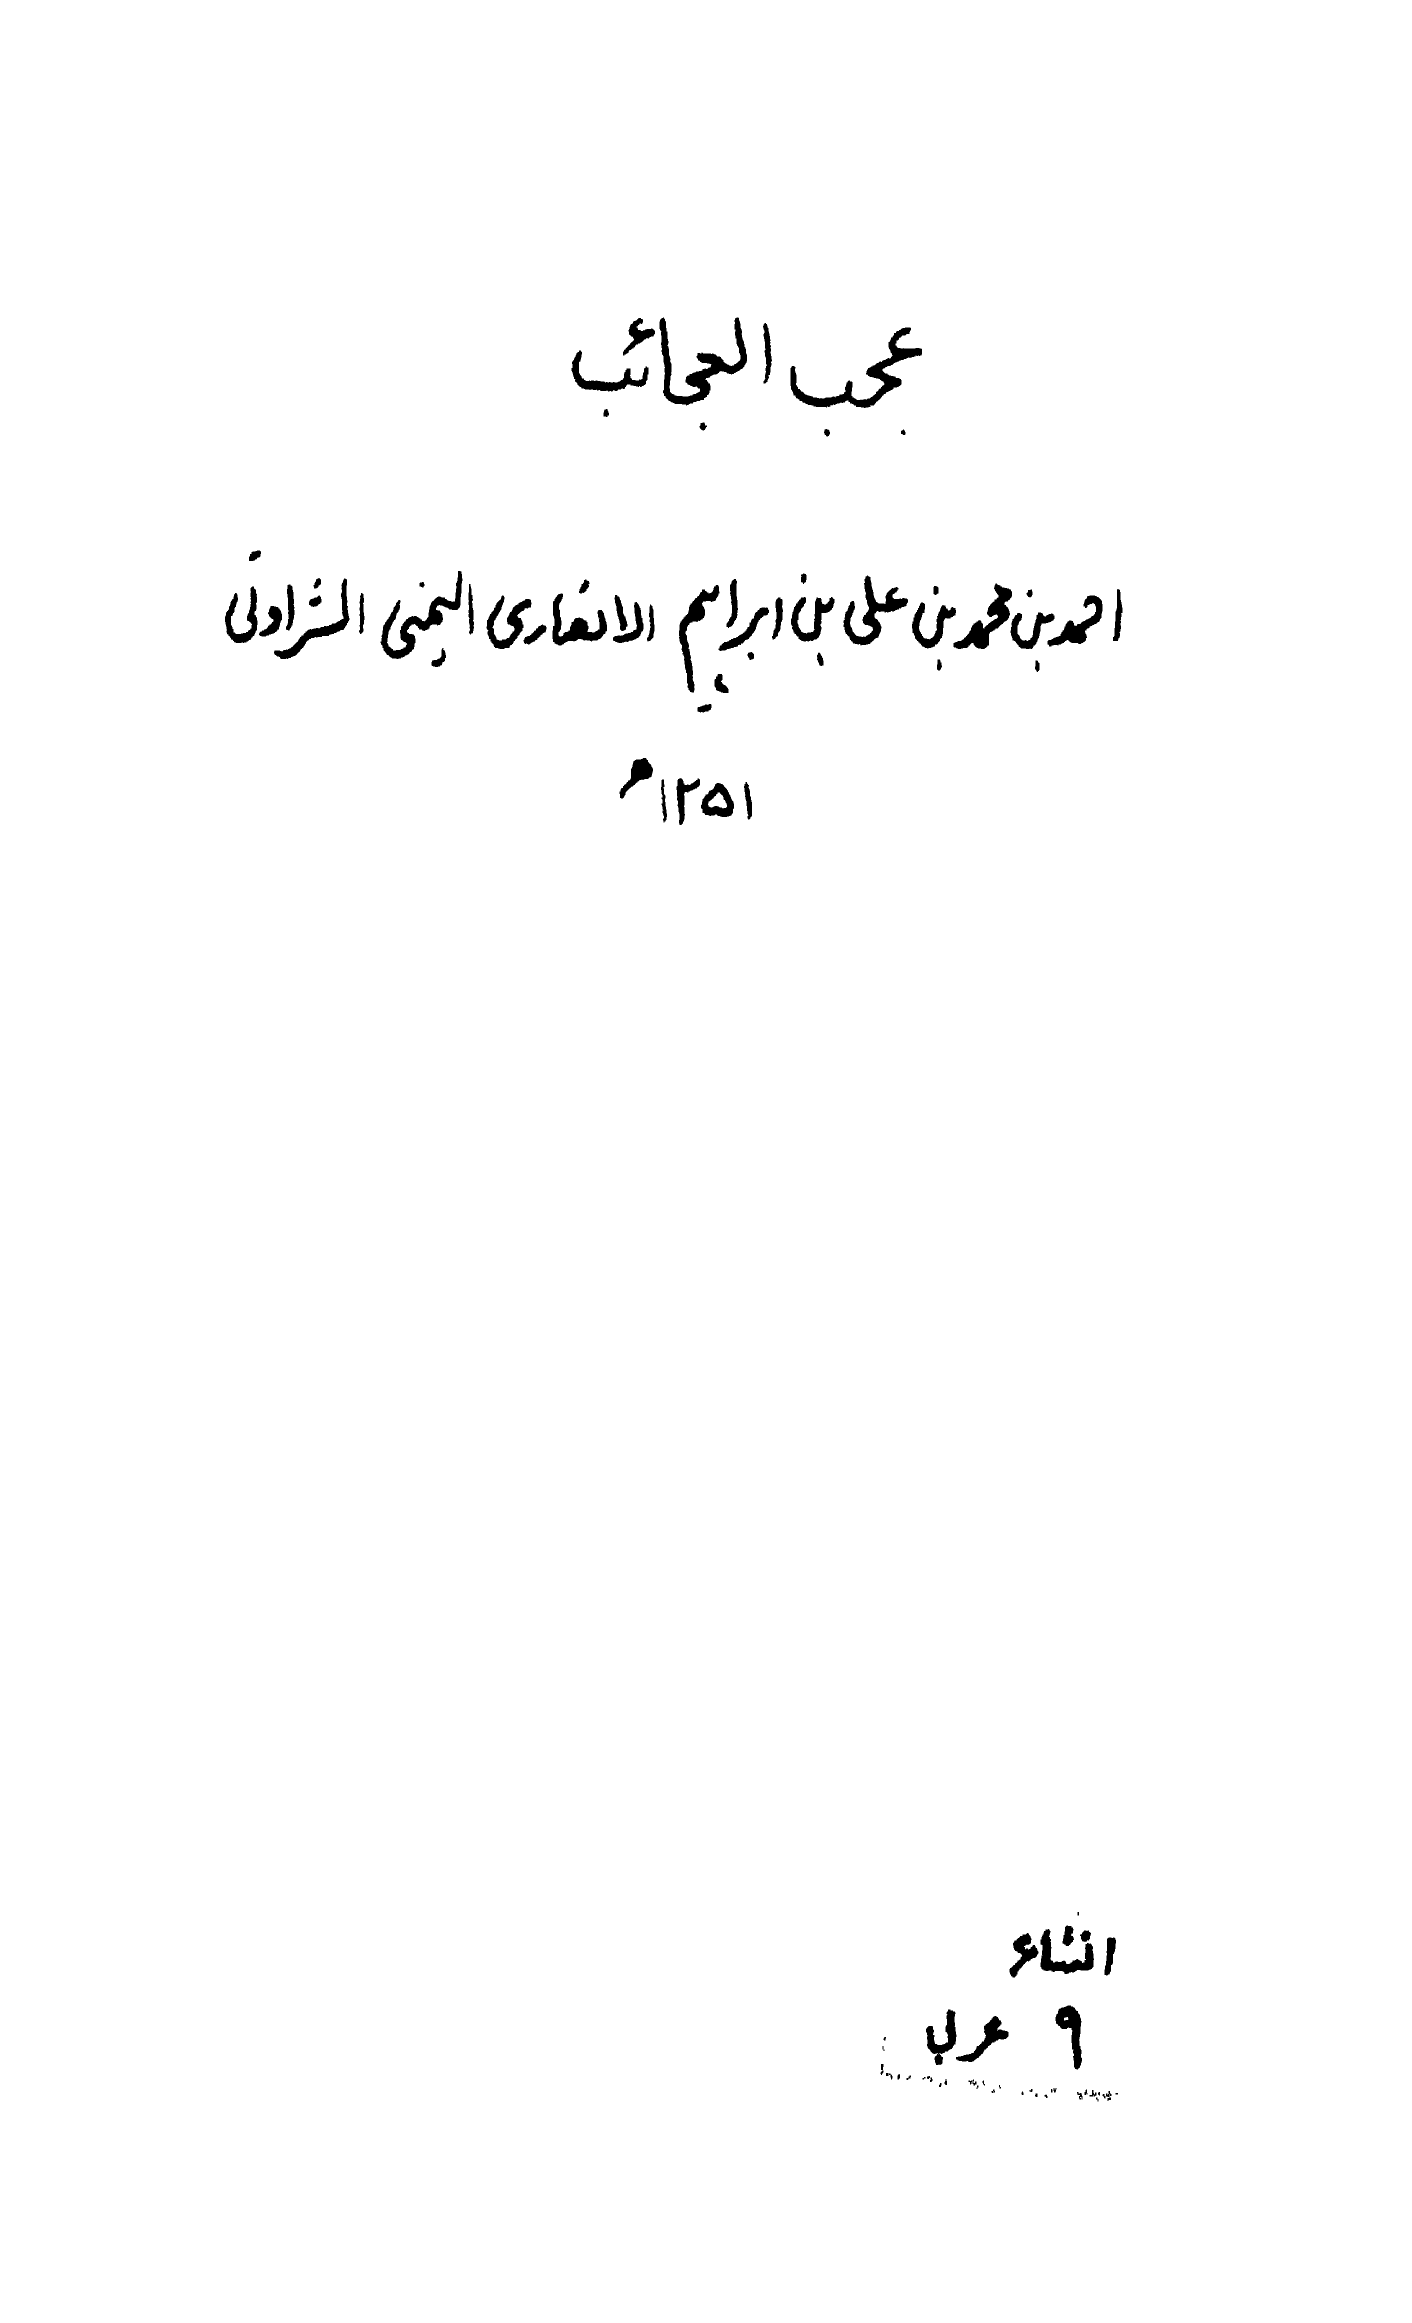 عجب العجائب
احمد بن محمد بن علی بن ابراہیم الانصاری الیمنی الشراونی
۱۲۵۱ھ
انشاء
۹ عربی